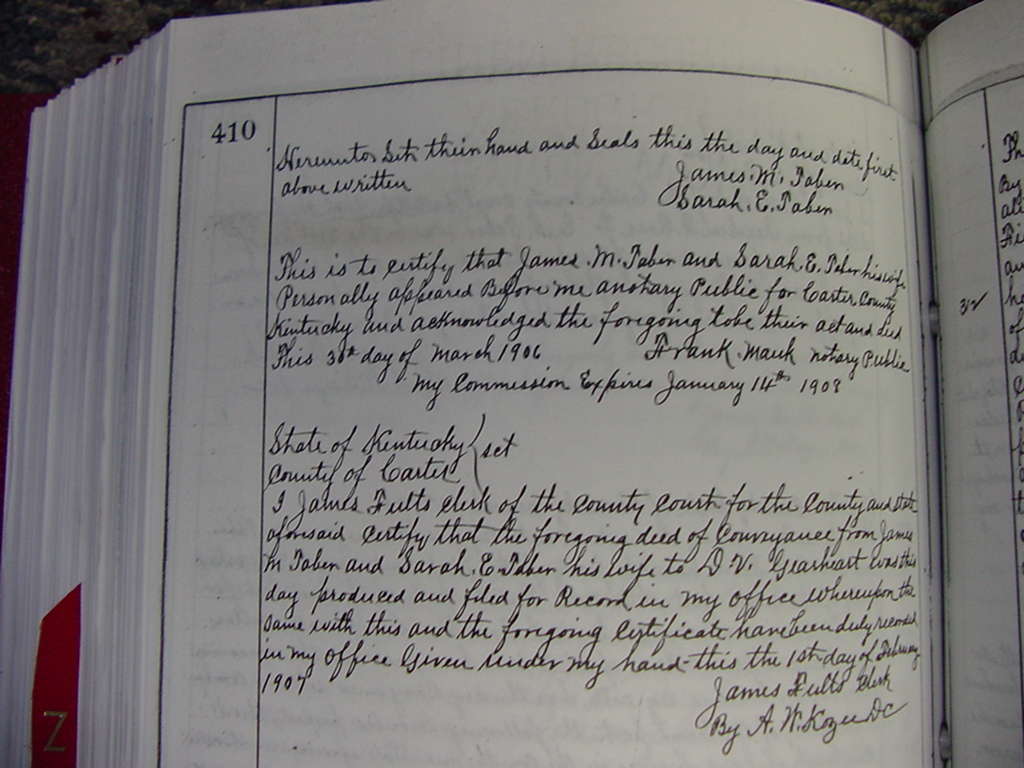 410
Hereunto Set their hand and Seals this the day and date first
above written
James. M. Taber
Sarah. E. Taber
This is to certify that James. M. Taber and Sarah. E. Taber his wife
Personally appeared Before me a notary Public for Carter County
Kentucky and acknowledged the foregoing to be their act and deed
This 30th day of March 1906 Frank Mauk notary Public
My Commission Expires January 14th 1908
State of Kentucky
County of Carter
) sct
I James Fults Clerk of the County Court for the County and State
aforesaid Certify that the foregoing deed of Conveyance from James
M Taber and Sarah. E. Taber his wife to D. V. Gearheart was this
day produced and filed for Record in my office whereupon the
Same with this and the foregoing Certificate have been duly recorded
in my office Given under my hand this the 1st day of February
1907
James Fults Clerk
By A. W. DC
312
Th
By
all
Fi
an
he
of
Z